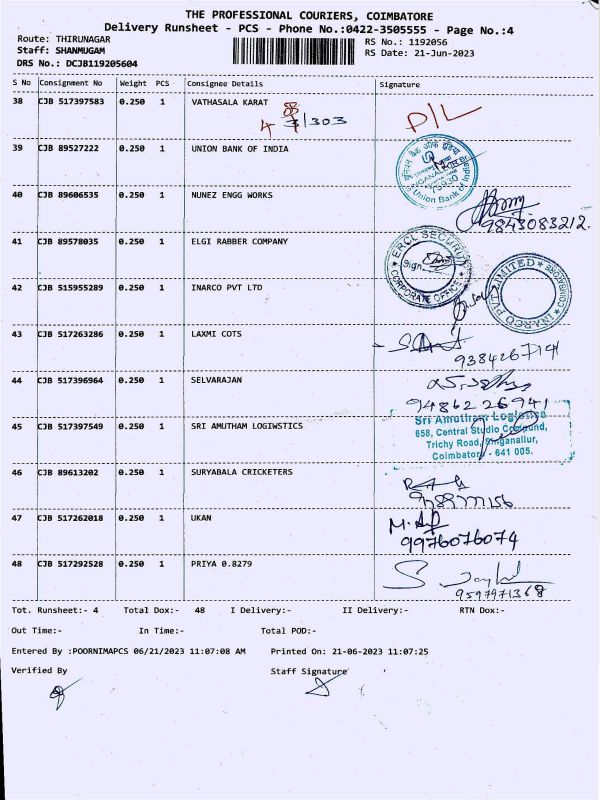 THE PROFESSIONAL COURIERS, COIMBATORE
Delivery Runsheet - PCS - Phone No.:0422-3505555 - Page No.:4
Route: THIRUNAGAR
RS No.: 1192056
Staff: SHANMUGAM
RS Date: 21-Jun-2023
DRS No.: DCJB119205604
S No Consignment No Weight PCS Consignee Details Signature
38 CJB 517397583 0.250 1 VATHASALA KARAT
D/L
39 CJB 89527222 0.250 1 UNION BANK OF INDIA
Union Bank of India
40 CJB 89606535 0.250 1 NUNEZ ENGG WORKS
9843083212.
41 CJB 89578035 0.250 1 ELGI RABBER COMPANY
ERCL SECURITY
Sign
CORPORATE OFFICE
42 CJB 515955289 0.250 1 INARCO PVT LTD
INARCO PVT LIMITED
COIMBATORE
43 CJB 517263286 0.250 1 LAXMI COTS
44 CJB 517396964 0.250 1 SELVARAJAN
9486226941
45 CJB 517397549 0.250 1 SRI AMUTHAM LOGIWSTICS
Sri Amutham Logistics
658, Central Studio Compound,
Trichy Road, Singanallur,
Coimbatore - 641 005.
46 CJB 89613202 0.250 1 SURYABALA CRICKETERS
47 CJB 517262018 0.250 1 UKAN
9976076074
48 CJB 517292528 0.250 1 PRIYA 0.8279
9597971368
Tot. Runsheet:- 4 Total Dox:- 48 I Delivery:- II Delivery:- RTN Dox:-
Out Time:- In Time:- Total POD:-
Entered By :POORNIMAPCS 06/21/2023 11:07:08 AM Printed On: 21-06-2023 11:07:25
Verified By Staff Signature